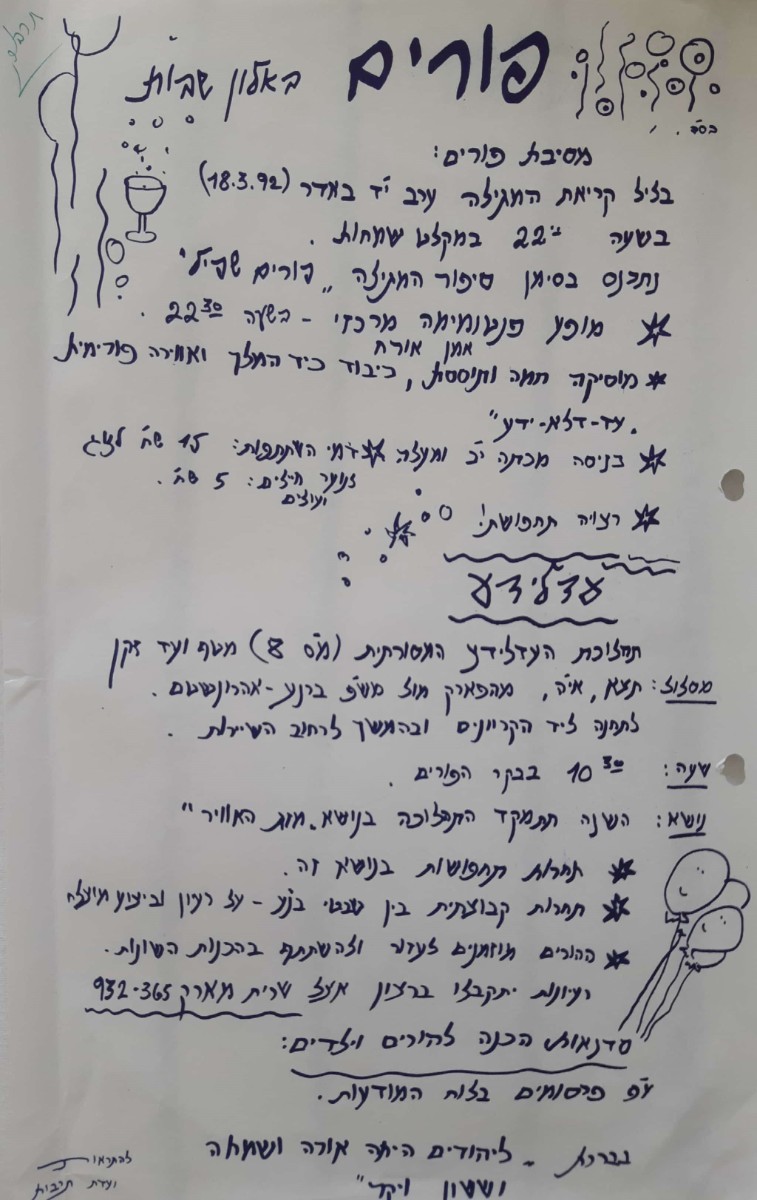 תרבות
פורים באלון שבות
בס"ד
מסיבת פורים:
בליל קריאת המגילה ערב י"ד באדר (18.3.92)
בשעה 22 במקלט שמחות.
נתכנס בסימן סיפור המגילה "פורים שפיל"
מופע פנטומימה מרכזי - בשעה 22³⁰.
אמן אורח
מוסיקה חמה ותוססת, כיבוד כיד המלך ואווירה פורימית
עד-דלא-ידע".
כניסה מכתה י"ב ומעלה דמי השתתפות: 15 ש"ח לזוג
לנוער חיילים: 5 ש"ח.
רצויה תחפושת!
עדלידע
תהלוכת העדלידע המסורתית (מס' 8) מטף ועד זקן
מסלול: תצא, אי"ה, מהפארק מול מש' ברנע-אהרונשטם.
לתחנה ליד הקרוונים ובהמשך לרחוב השיירות.
שעה: 10³⁰ בבקר הפורים.
נושא: השנה תתמקד התהלוכה בנושא "מזג האוויר"
תחרות תחפושות בנושא זה.
תחרות קבוצתית בין שבטי בנ"ע - על רעיון וביצוע מועלה
ההורים מוזמנים לעזור ולהשתתף בהכנות השונות.
רעיונות יתקבלו ברצון אצל שרית מארק 932-365
סדנאות הכנה להורים וילדים:
ע"פ פרסומים בלוח המודעות.
בברכת "ליהודים היתה אורה ושמחה
וששון ויקר"
להתראות
ועדת תרבות